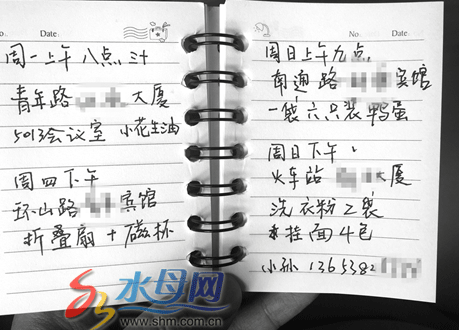 No. Date:
周一上午 八点
青年路 大厦
5013会议室 小花生油
周四下午
环山路 宾馆
折叠扇+磁杯
No. Date
周日上午九点
南通路 宾馆
一袋六只装鸭蛋
周日下午
火车站 大厦
洗衣粉2袋
挂面4包
小孙 1365382
水母网
www.shm.com.cn